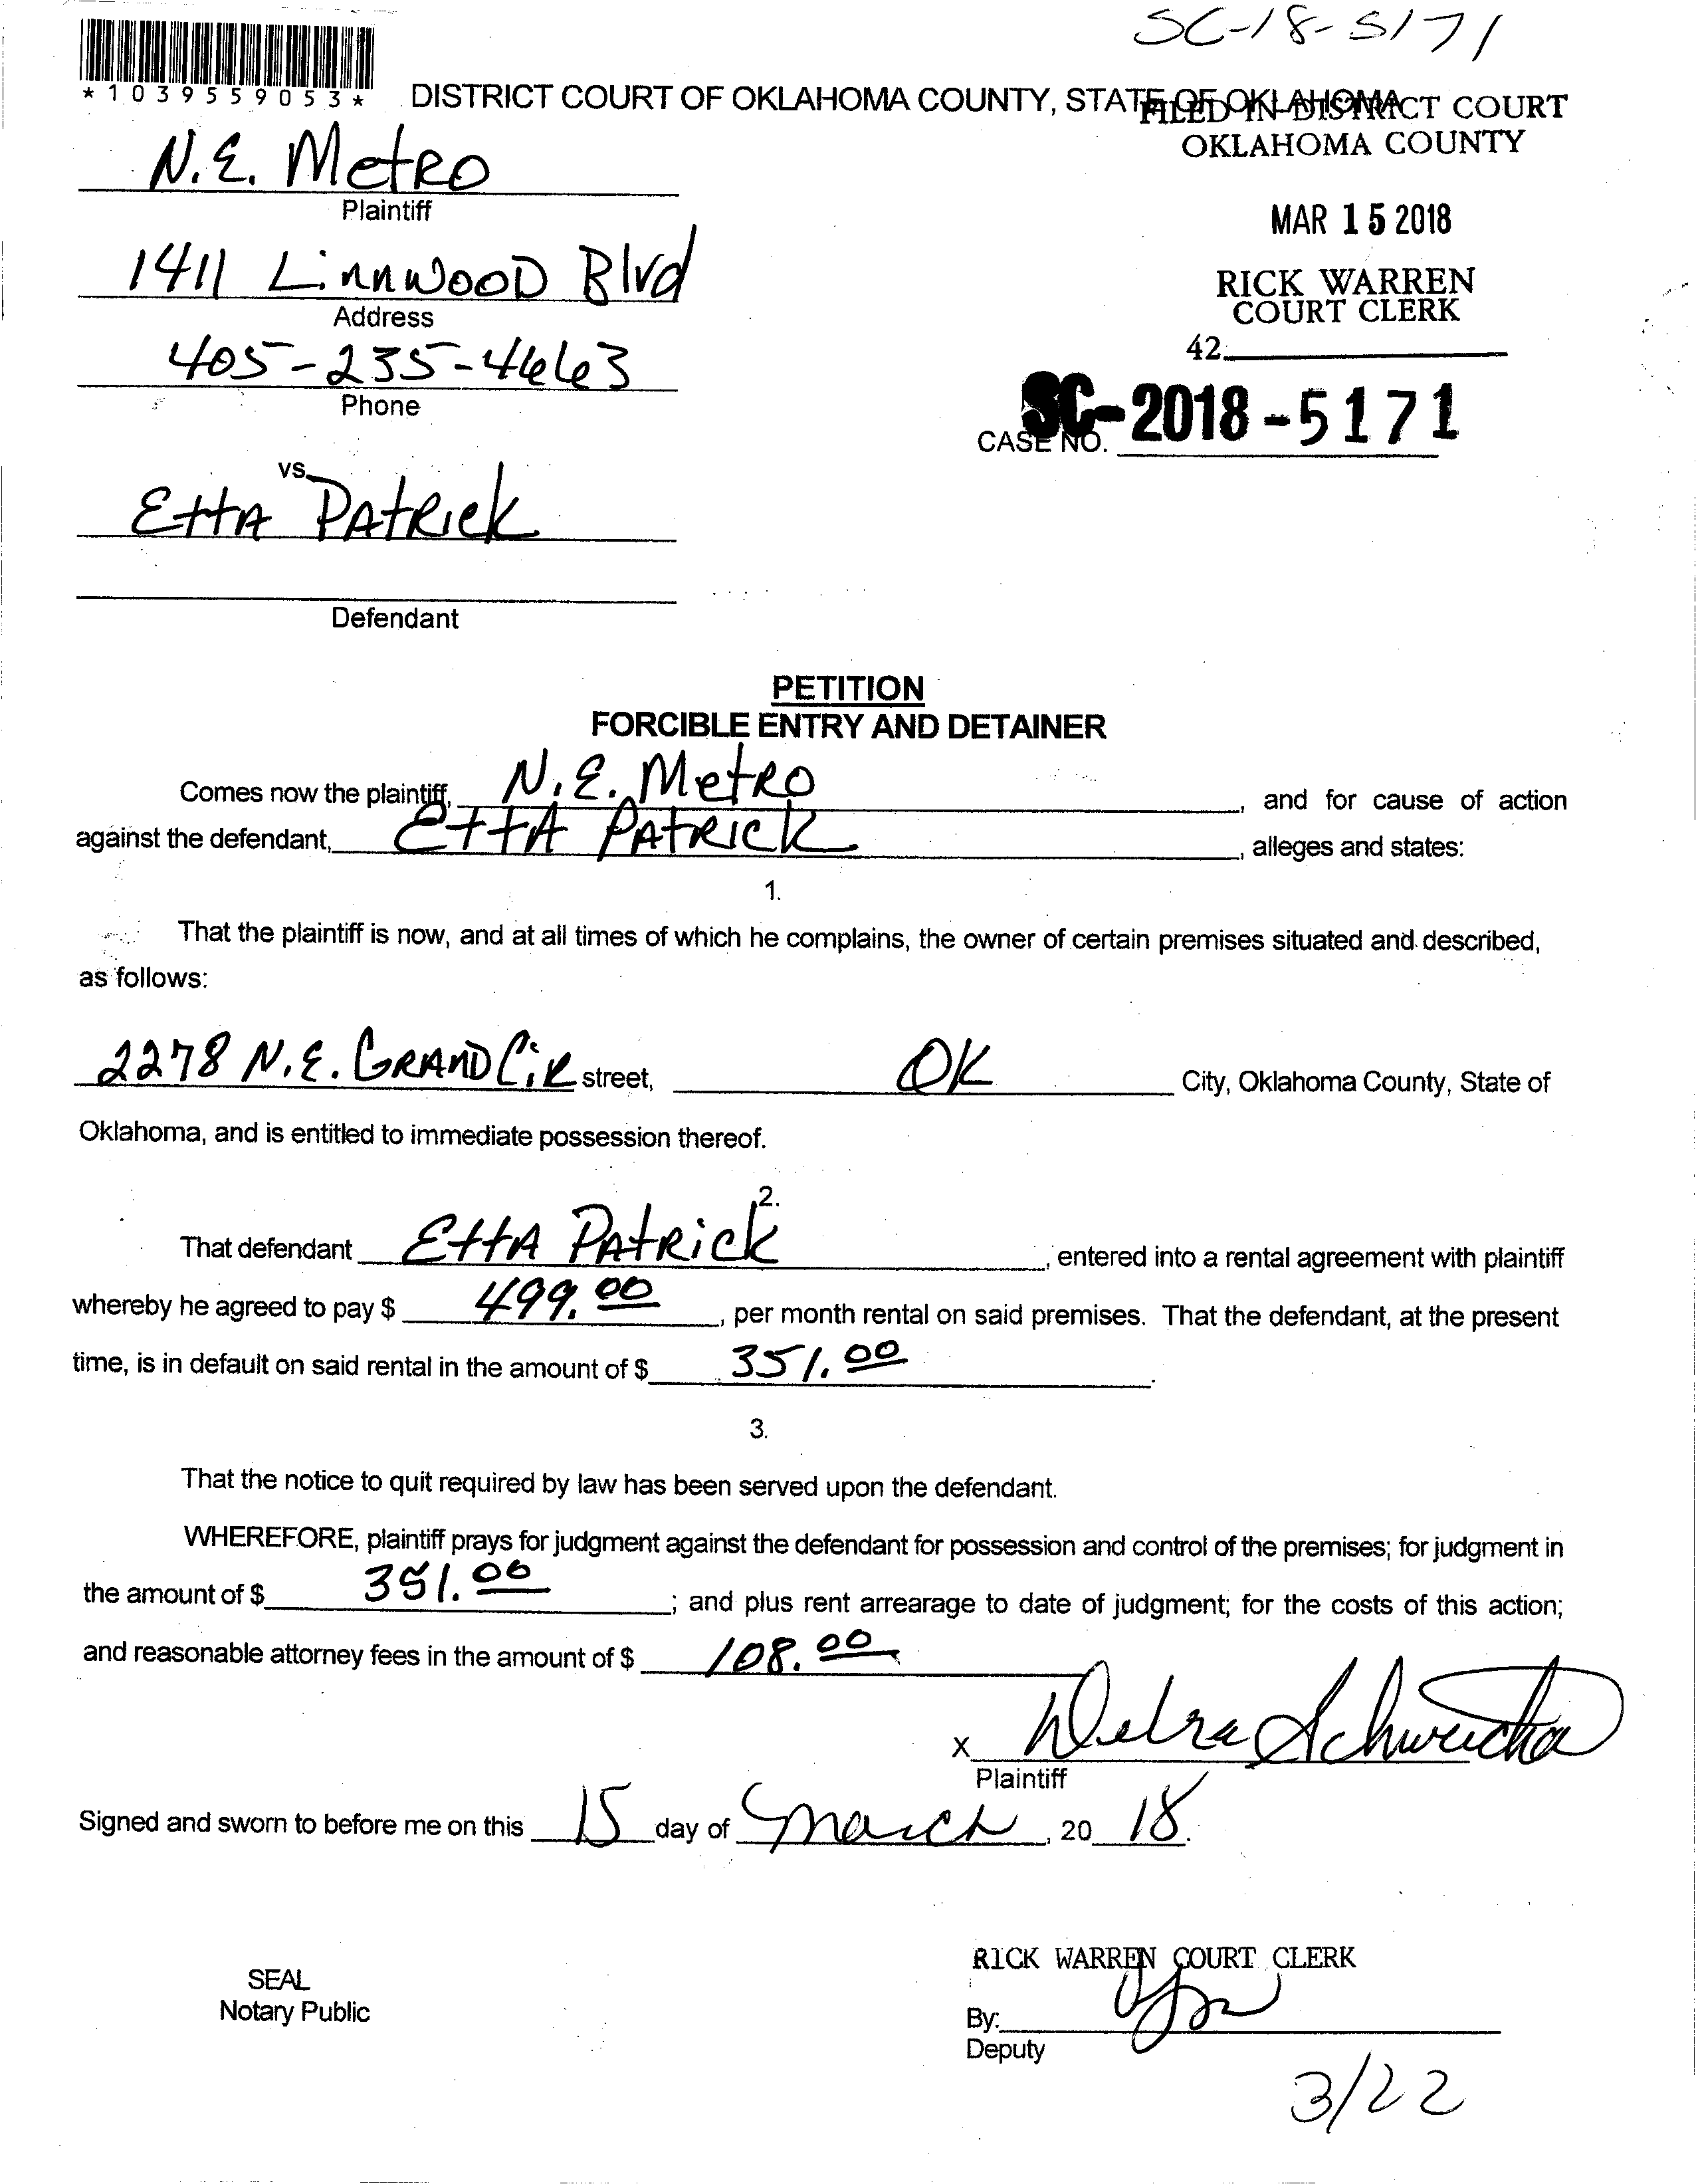 SC-18-5171
*1039559053*
DISTRICT COURT OF OKLAHOMA COUNTY, STATE OF OKLAHOMA
FILED IN DISTRICT COURT
OKLAHOMA COUNTY
N.E. Metro
Plaintiff
MAR 15 2018
1411 Linnwood Blvd
Address
RICK WARREN
COURT CLERK
405-235-4663
Phone
42
SC-2018-5171
CASE NO.
vs.
Etta Patrick
Defendant
PETITION
FORCIBLE ENTRY AND DETAINER
Comes now the plaintiff, N.E. Metro, and for cause of action
against the defendant, Etta Patrick, alleges and states:
1.
That the plaintiff is now, and at all times of which he complains, the owner of certain premises situated and described,
as follows:
2278 N.E. Grand Cir street, OK City, Oklahoma County, State of
Oklahoma, and is entitled to immediate possession thereof.
2.
That defendant Etta Patrick, entered into a rental agreement with plaintiff
whereby he agreed to pay $ 499.00, per month rental on said premises. That the defendant, at the present
time, is in default on said rental in the amount of $ 351.00.
3.
That the notice to quit required by law has been served upon the defendant.
WHEREFORE, plaintiff prays for judgment against the defendant for possession and control of the premises; for judgment in
the amount of $ 351.00; and plus rent arrearage to date of judgment; for the costs of this action;
and reasonable attorney fees in the amount of $ 108.00
x Debra
Plaintiff
Signed and sworn to before me on this 15 day of March, 20 18.
RICK WARREN COURT CLERK
SEAL
Notary Public
By:
Deputy
3/22